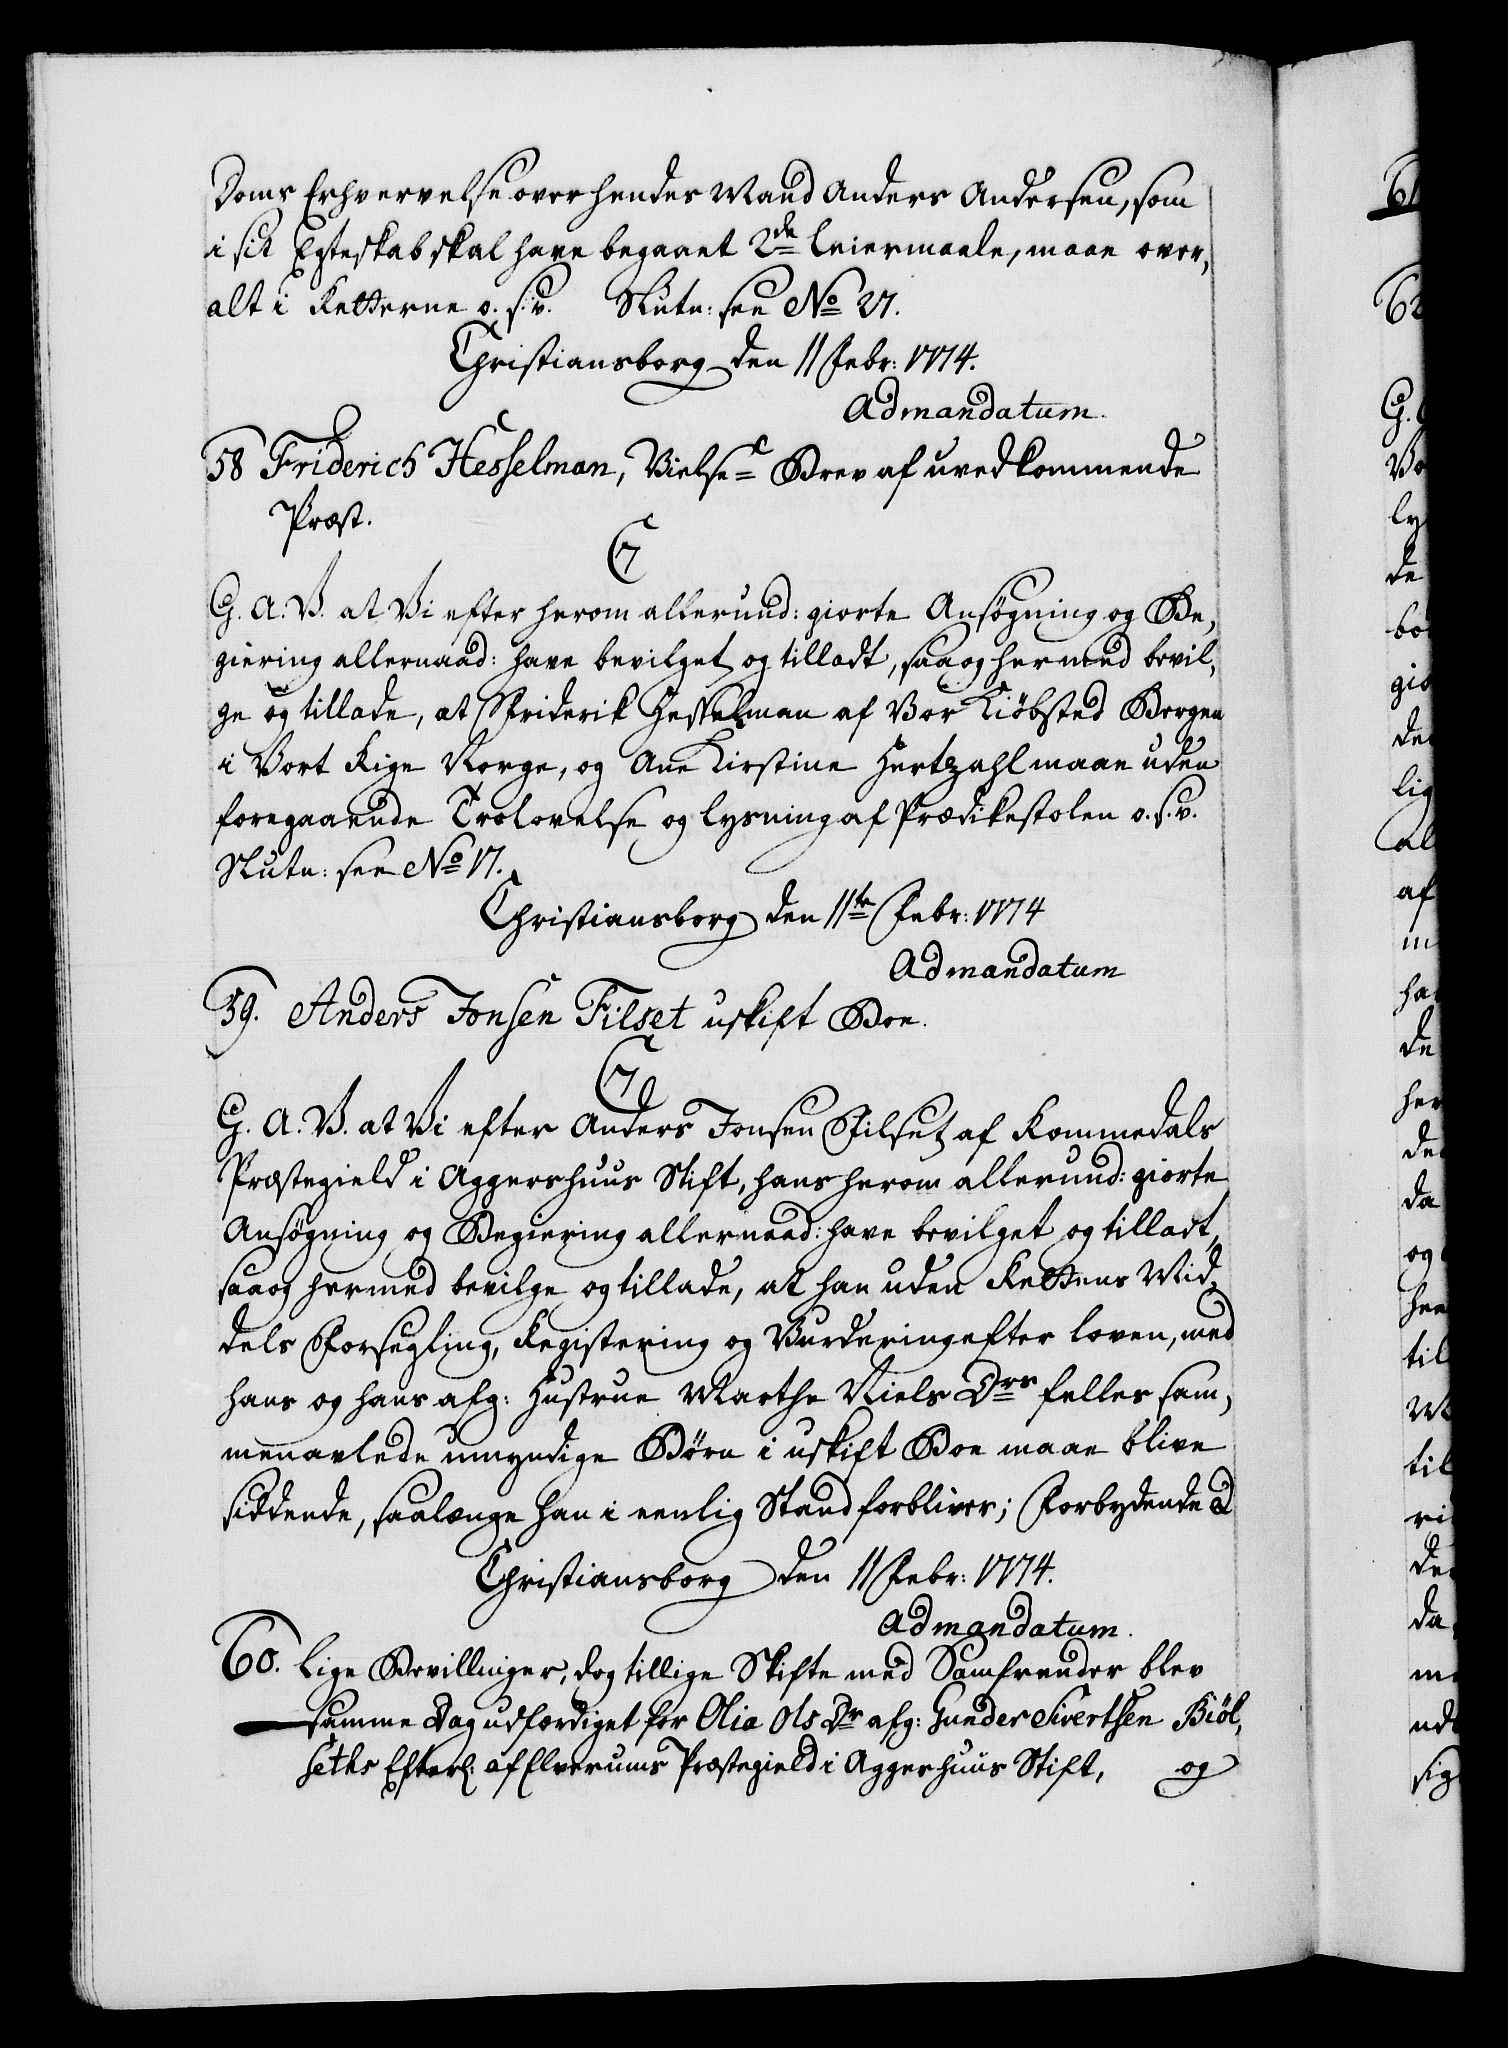 Doms Erhvervelse over hendes Mand Anders Andersen, som
i sit Egteskab skal have begaaet 2de Leiermaale, maae over,
alt i Retterne o. s. v. Slutn: see No 27.
Christiansborg den 11 Febr: 1774.
Ad mandatum.
58 Friderich Hesselman, Vielse= Brev af uvedkommende
Præst.
C7
G. A. V. at Vi efter herom allerund: giorte Ansøgning og Be,
giering allernaad: have bevilget og tilladt, saa og hermed bevil,
ge og tillade, at Friderik Hesselman af Vor Kiøbsted Bergen
i Vort Rige Norge, og Ane Kirstine Hertzahl maae uden
foregaaende Trolovelse og Lysning af Prædikestolen o. s. v.
Slutn: see No 17.
Christiansborg den 11te Febr: 1774
Ad mandatum
59. Anders Jonsen Filset uskift Boe.
C7
G. A. V. at Vi efter Anders Jonsen Filset af Rommedals
Præstegield i Aggershuus Stift, hans herom allerund: giorte
Ansøgning og Begiering allernaad: have bevilget og tilladt,
saa og hermed bevilge og tillade, at han uden Rettens Mid,
dels Forsegling, Registering og Vurdering efter Loven, med
hans og hans afg: Hustrue Marthe Niels Drs felles sam,
menavlede umyndige Børn i uskift Boe maae blive
siddende, saalænge han i eenlig Stand forbliver; Forbydende &
Christiansborg den 11 Febr: 1774.
Ad mandatum.
60. Lige Bevillinger, dog tillige Skifte med Samfrender blev
samme Dag udfærdiget for Olia Ols Dr afg: Gunder Sivertsen Kiøl,
seths Efterl: af Elverums Præstegield i Aggershuus Stift, og